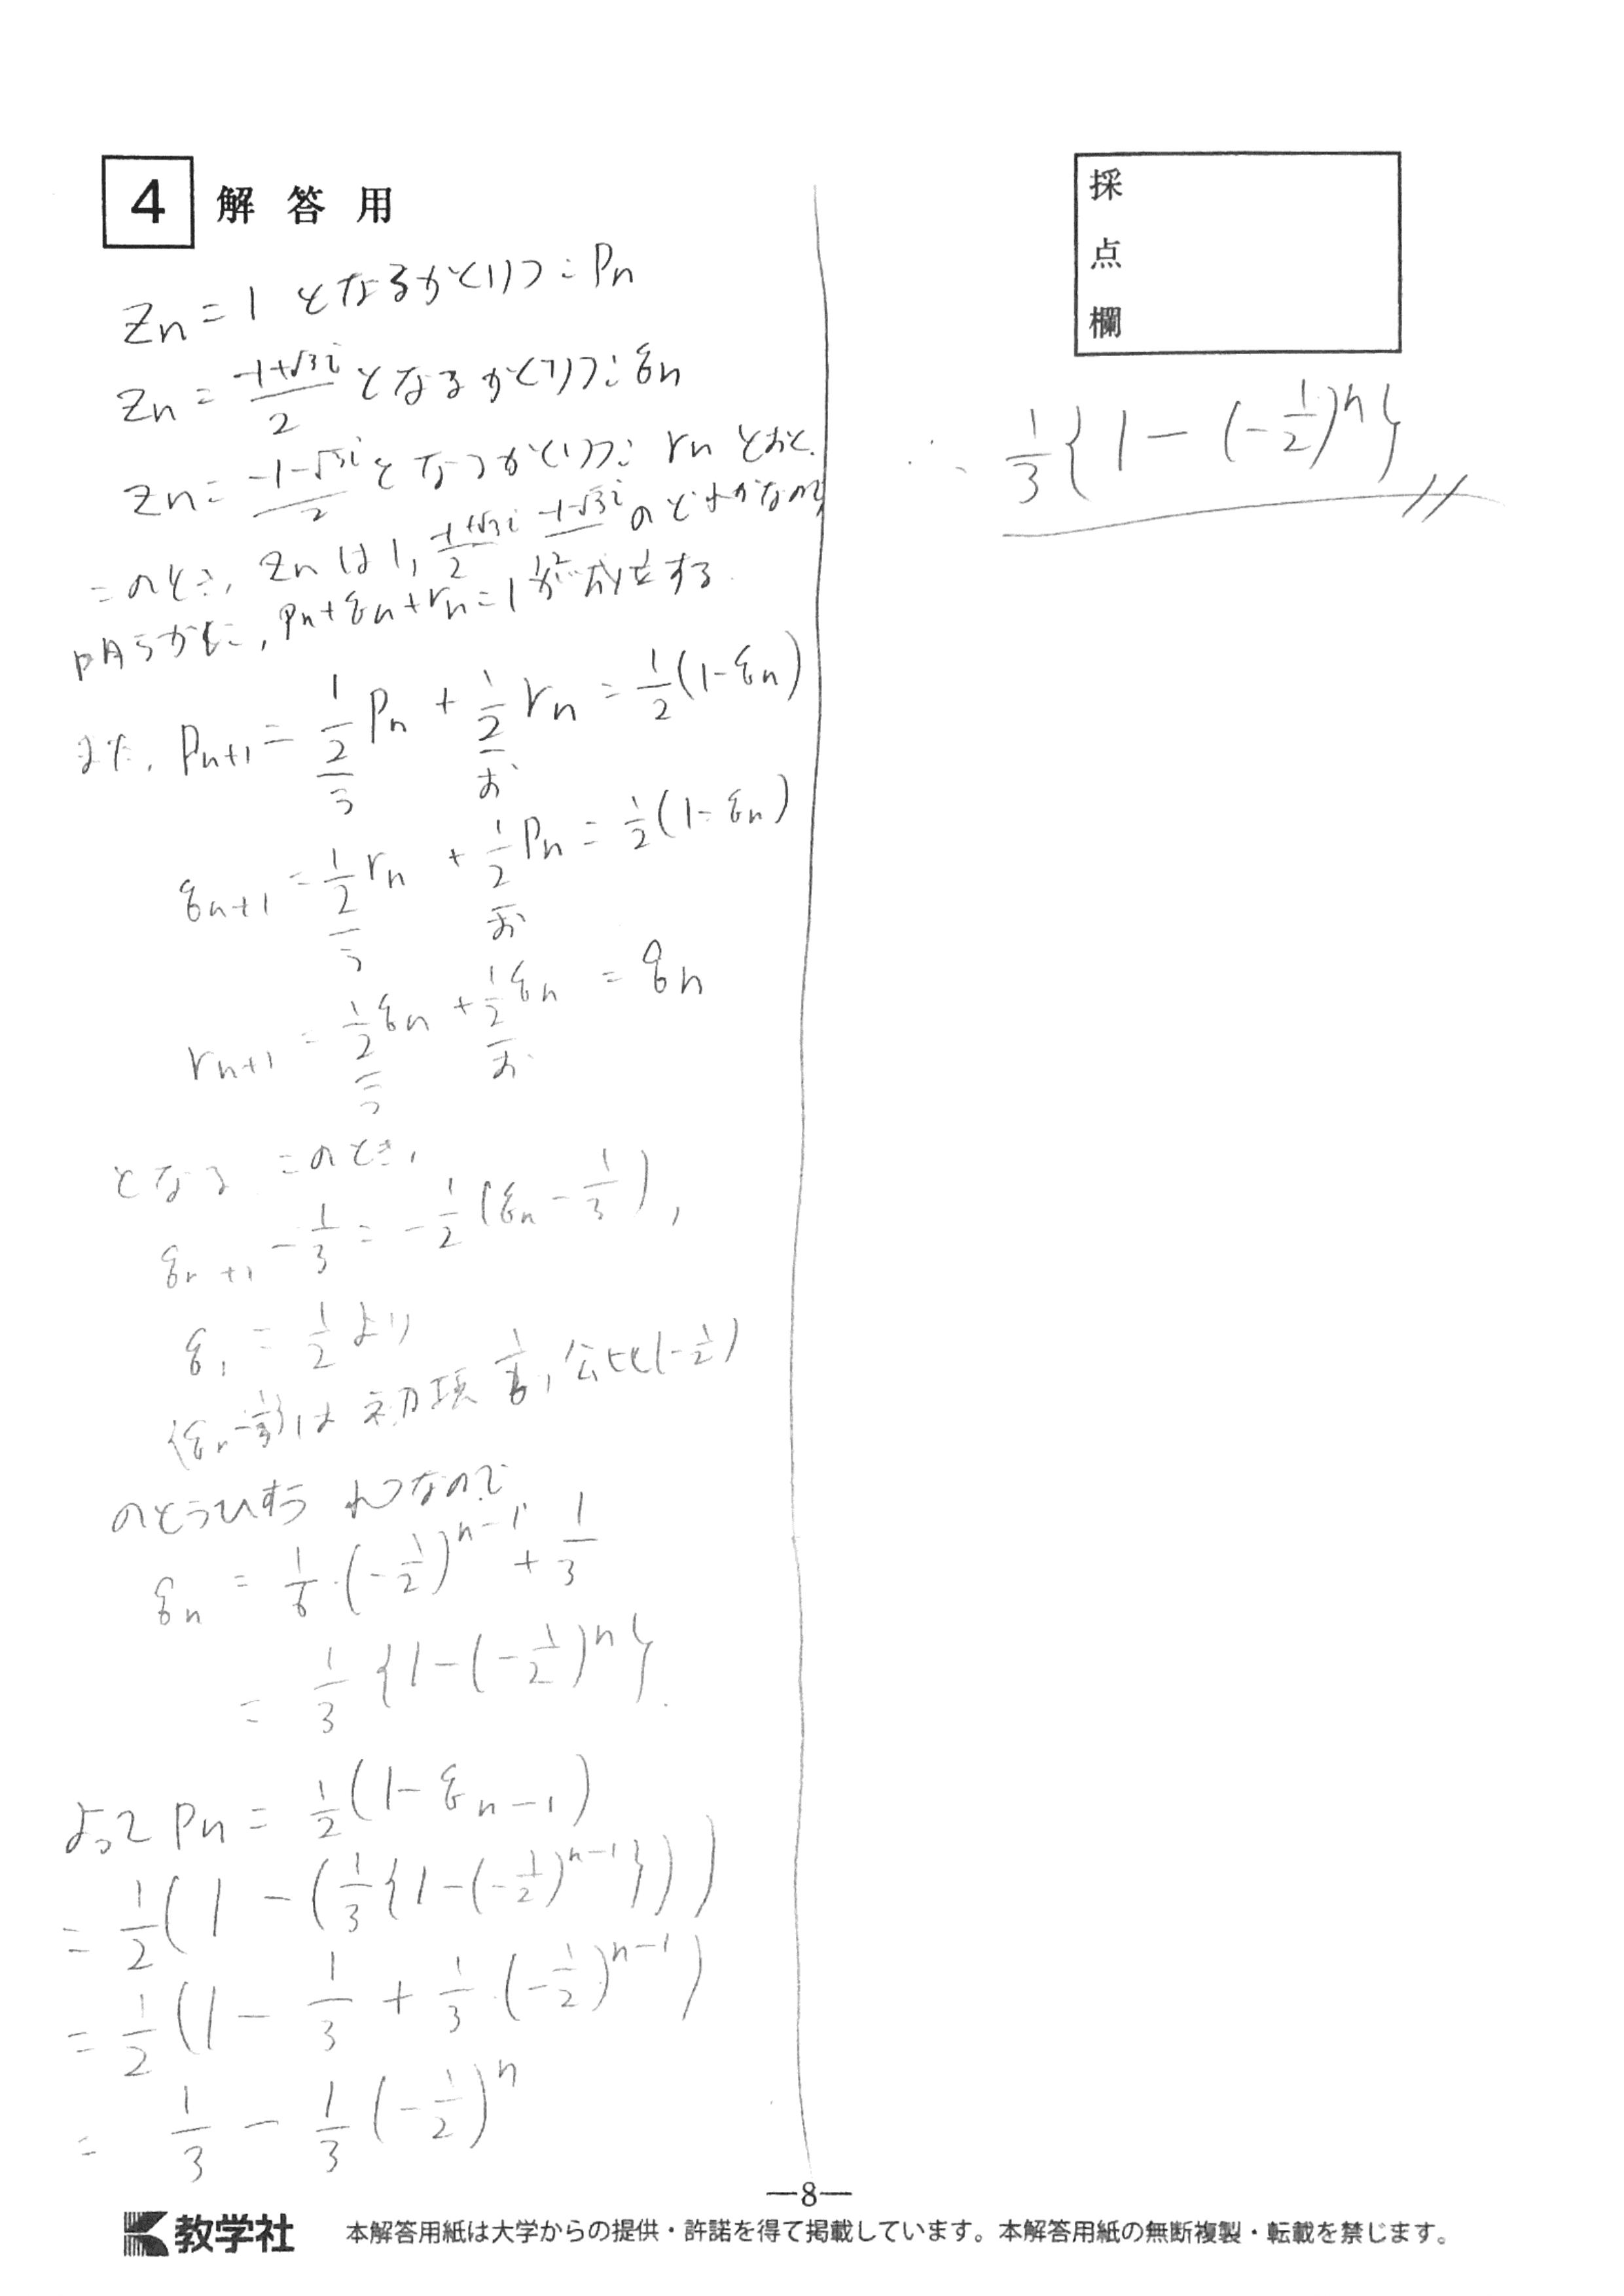 4 解答用
採点欄
Zn = 1 となるかくりつ: Pn
Zn = (-1+√3i)/2 となるかくりつ: qn
Zn = (-1-√3i)/2 となるかくりつ: rn とおく.
このとき, Znは1, (-1+√3i)/2, (-1-√3i)/2 のどれかなので,
明らかに, pn+qn+rn=1が成立する
また, Pn+1 = 1/2 Pn + 1/2 rn = 1/2(1-qn)
う お
qn+1 = 1/2 rn + 1/2 Pn = 1/2(1-qn)
う お
rn+1 = 1/2 qn + 1/2 qn = qn
う お
となる このとき,
qn+1 - 1/3 = -1/2(qn - 1/3),
q1 = 1/2 より
{qn-1/3}は 初項 1/6, 公比(-1/2)
のとうひすうれつなので
qn = 1/6・(-1/2)^(n-1) + 1/3
= 1/3{1-(-1/2)^n}.
よって Pn = 1/2(1-qn-1)
= 1/2(1-(1/3{1-(-1/2)^(n-1)}))
= 1/2(1 - 1/3 + 1/3・(-1/2)^(n-1))
= 1/3 - 1/3(-1/2)^n
∴ 1/3{1-(-1/2)^n}
—8—
教学社 本解答用紙は大学からの提供・許諾を得て掲載しています。本解答用紙の無断複製・転載を禁じます。